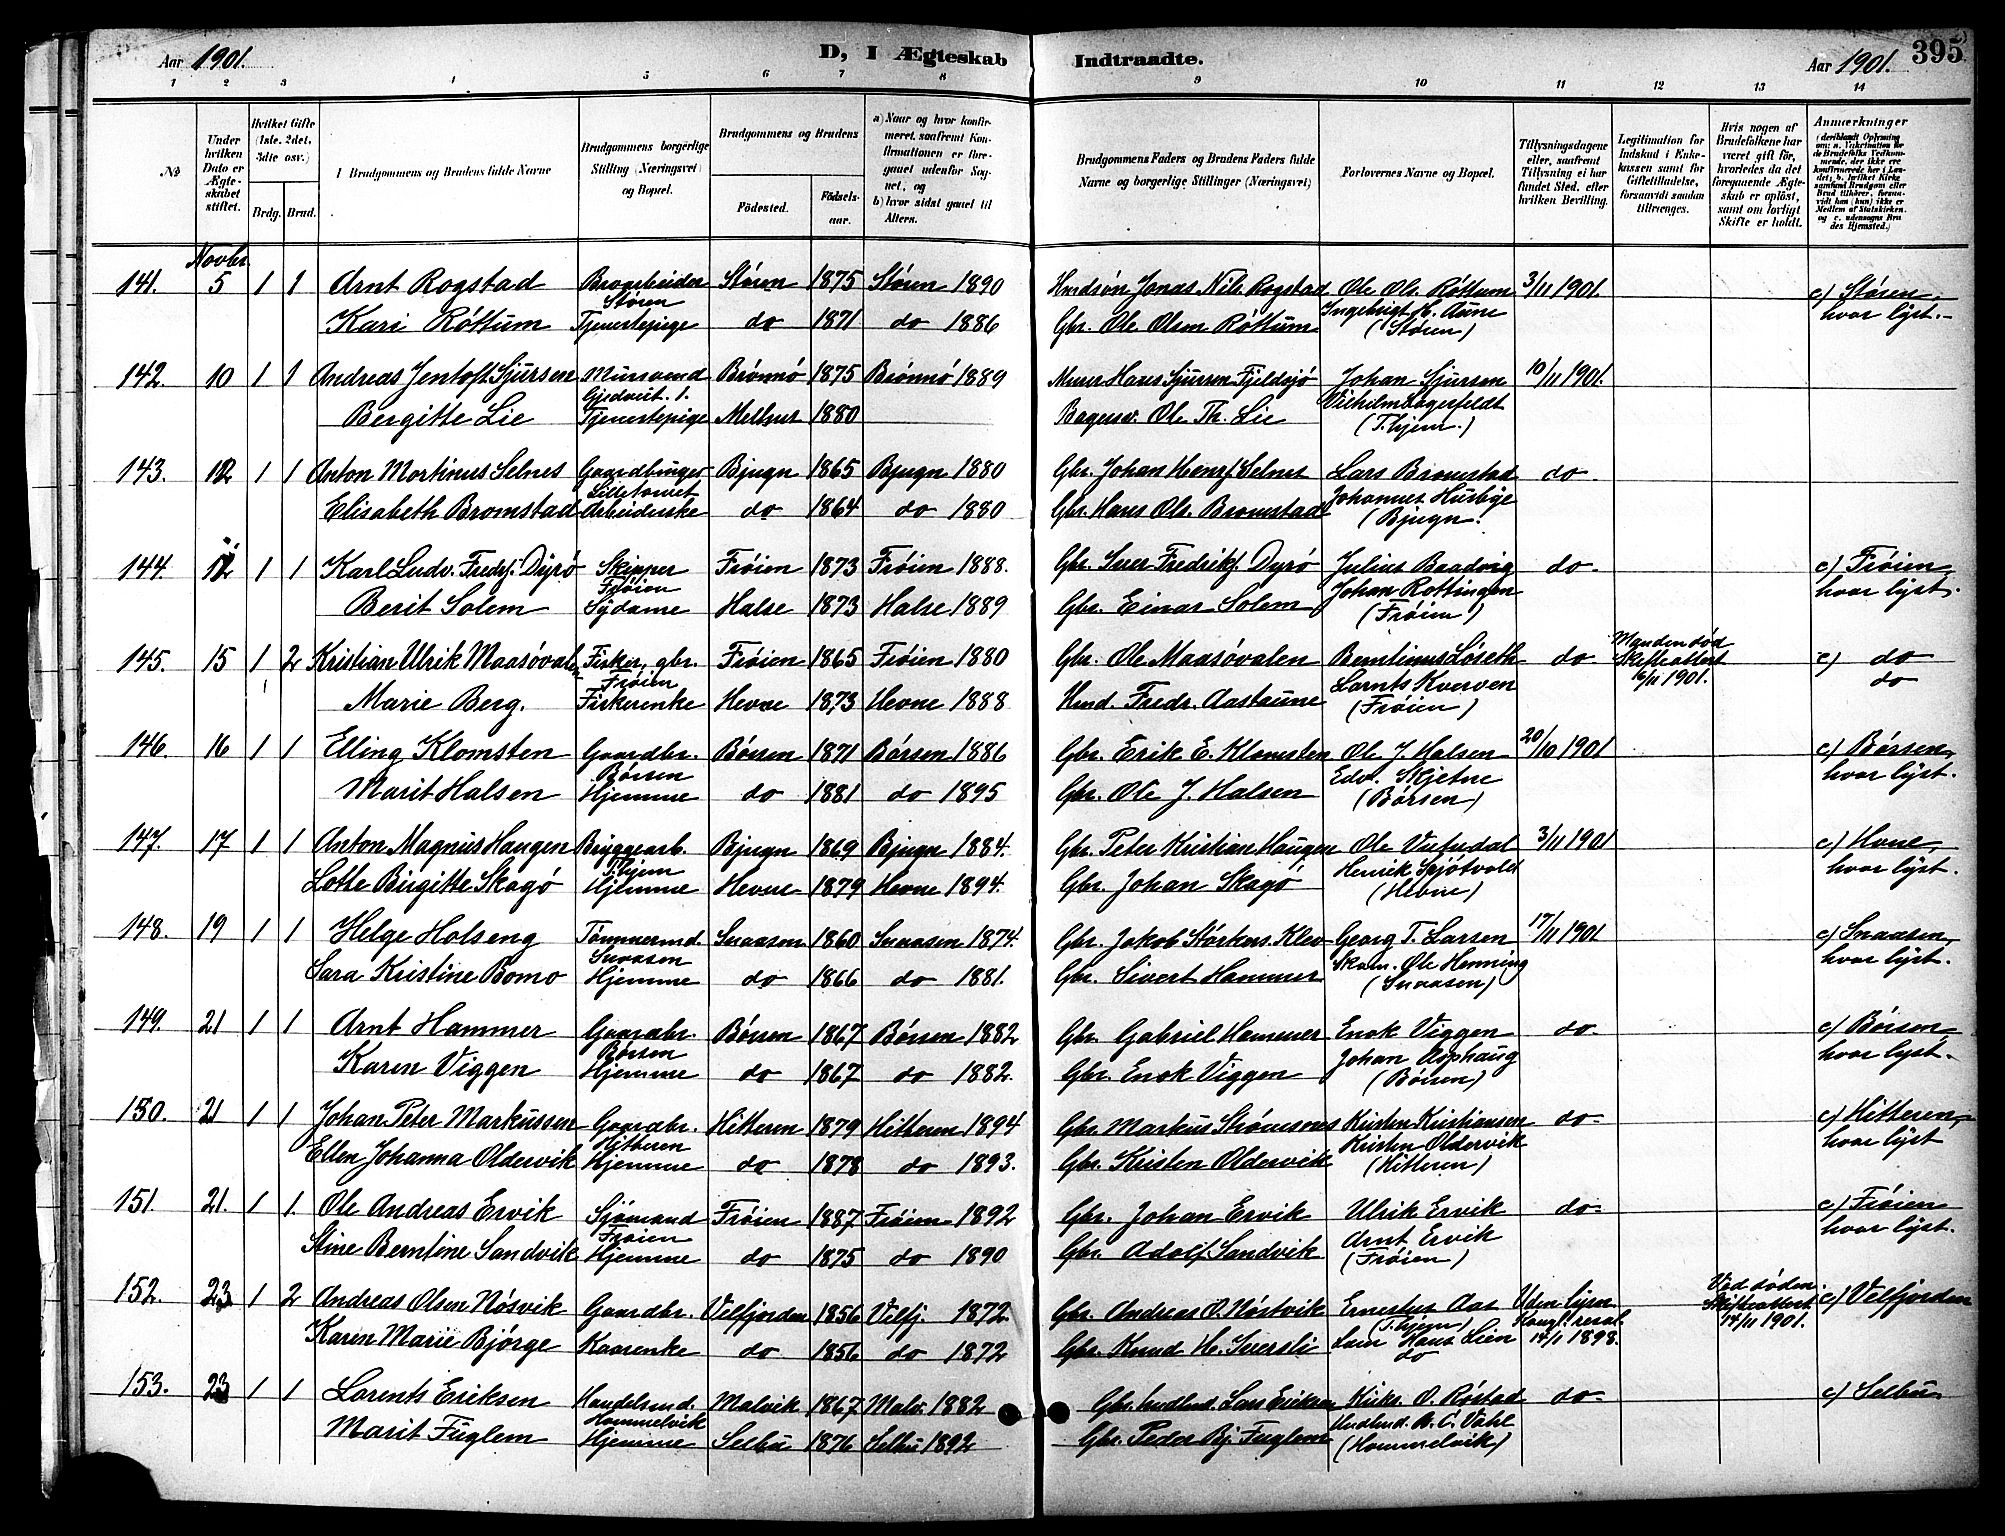 Aar 1901. D, I Ægteskab Indtraadte. Aar 1901. 395
1 2 3 4 5 6 7 8 9 10 11 12 13 14
No
Under hvilken Dato er Ægteskabet stiftet.
Hvilket Gifte (1ste, 2det, 3die osv.)
Brdg. Brud.
Brudgommens og Brudens fulde Navne
Brudgommens borgerlige Stilling (Næringsvei) og Bopæl.
Brudgommens og Brudens
Fødested. Fødselsaar.
a) Naar og hvor konfirmeret, saafremt Konfirmationen er foregaaet udenfor Sognet, og
b) hvor sidst gaaet til Alters.
Brudgommens Faders og Brudens Faders fulde Navne og borgerlige Stillinger (Næringsvei)
Forlovernes Navne og Bopæl.
Tillysningsdagene eller, saafremt Tillysning ei har fundet Sted, efter hvilken Bevilling.
Legitimation for Indskud i Enkekassen samt for Giftetilladelse, forsaavidt saadan tiltrænges.
Hvis nogen af Brudefolkene har været gift før, hvorledes da det foregaaende Ægteskab er opløst, samt om lovligt Skifte er holdt.
Anmærkninger
Novbr.
141. 5 1 1 Arnt Rogstad Støren 1875 Støren 1890 Jonas Nils Rogstad Ole Ols. Røttum 3/11 1901. c) Støren,
Støren Ingebrigt H. Aune hvor lyst.
Kari Röttum Tjenestepige do 1871 do 1886 Gbr. Ole Olsen Röttum (Støren)
142. 10 1 1 Andreas Jentoft Sjursen Mursvend Brönnö 1875 Brönnö 1889 Murer Hans Sjursen Fjeldsjö Johan Sjursen 10/11 1901.
Vilhelm Lagerfeldt
Bergitte Lie Tjenestepige Melhus 1880 Ole Th. Lie (T.hjem.)
143. 12 1 1 Anton Martinus Selnes Gaardbruger Bjugn 1865 Bjugn 1880 Gbr. Johan Henr. Selnes Lars Bromstad do
Johannes Husbye
Elisabeth Bromstad Arbeiderske do 1864 do 1880 Gbr. Hans Ols. Bromstad (Bjugn.
144. 12 1 1 Karl Ludv. Fredrf. Dyrö Skipper Frøien 1873 Frøien 1888. Gbr. Iver Fredrikf. Dyrö Julius Baadvig do c) Frøien,
Frøien Johan Rottingen hvor lyst.
Berit Solem Sydame Halse 1873 Halse 1889 Gbr. Einar Solem (Frøien)
145. 15 1 2 Kristian Ulrik Maasövalen Fisker, gbr. Frøien 1865 Frøien 1880 Gbr. Ole Maasövalen Berntinus Løseth do Manden død Skifteattest 16/11 1901. c) do
Frøien Larnts Kverven do
Marie Berg. Fiskerenke Hevne 1873 Hevne 1888 Fredr. Aastaune (Frøien)
146. 16 1 1 Elling Klomsten Gaardbr. Börsen 1871 Börsen 1886 Gbr. Erik E. Klomsten Ole J. Halsen 20/10 1901 c) Börsen,
Börsen Edv. Skjetne hvor lyst.
Marit Halsen Hjemme do 1881 do 1895 Gbr. Ole J. Halsen (Börsen)
147. 17 1 1 Anton Magnus Haugen Bryggearb. Bjugn 1869 Bjugn 1884. Gbr. Peter Kristian Haugen Ole Vuttudal 3/11 1901 c) Hevne,
T.hjem Henrik Spjötvold hvor lyst.
Lotte Birgitte Skagö Hjemme Hevne 1879 Hevne 1894. Gbr. Johan Skagö (Hevne)
148. 19 1 1 Helge Holseng Tömmermd. Snaasen 1860 Snaasen 1874. Gbr. Jakob Størkers. Klev Georg T. Larsen 17/11 1901 c) Snaasen,
Snaasen Ole Henning hvor lyst.
Sara Kristine Bomo Hjemme do 1866 do 1881. Gbr. Sivert Hammer (Snaasen)
149. 21 1 1 Arnt Hammer Gaardbr. Börsen 1867 Börsen 1882 Gbr. Gabriel Hammer Enok Viggen do c) Börsen,
Börsen Johan Asphaug hvor lyst.
Karen Viggen Hjemme do 1867 do 1882. Gbr. Enok Viggen (Börsen)
150. 21 1 1 Johan Peter Markussen Gaardbr. Hitteren 1879 Hitteren 1894 Gbr. Markus Kristen Kristiansen do c) Hitteren,
Hitteren Kristen Oldervik hvor lyst
Ellen Johanna Oldervik Hjemme do 1878 do 1893. Gbr. Kristen Oldervik (Hitteren)
151. 21. 1 1. Ole Andreas Ervik Sjömand Frøien 1887 Frøien 1892 Gbr. Johan Ervik Ulrik Ervik do c) Frøien
Frøien Arnt Ervik hvor lyst.
Stine Berntine Sandvik Hjemme do 1875 do 1890 Gbr. Adolf Sandvik (Frøien)
152. 23 1 2 Andreas Olsen Nösvik Gaardbr. Velfjorden 1856 Velfj. 1872. Gbr. Andreas O. Nöstvik Ernestus Aas Uden lysn. Ved döden. Skifteattest 14/11 1901. c) Velfjorden
(T.hjem) Kongl. resol.
Karen Marie Bjørge Kaarenke do 1856 do 1872 Gbr. Knud H. Hans Lien do 14/1 1898.
153. 23 1 1 Lorents Eriksen Handelsmd. Malvik 1867 Malv. 1882 Gbr. Lars Eriksen Kirks. O. Røstad do c) Selbu
Hommelvik Hndlmd. A. C. Vahl
Marit Fuglem Hjemme Selbu 1876 Selbu 1892 Gbr. Peder Bj. Fuglem (Hommelvik)